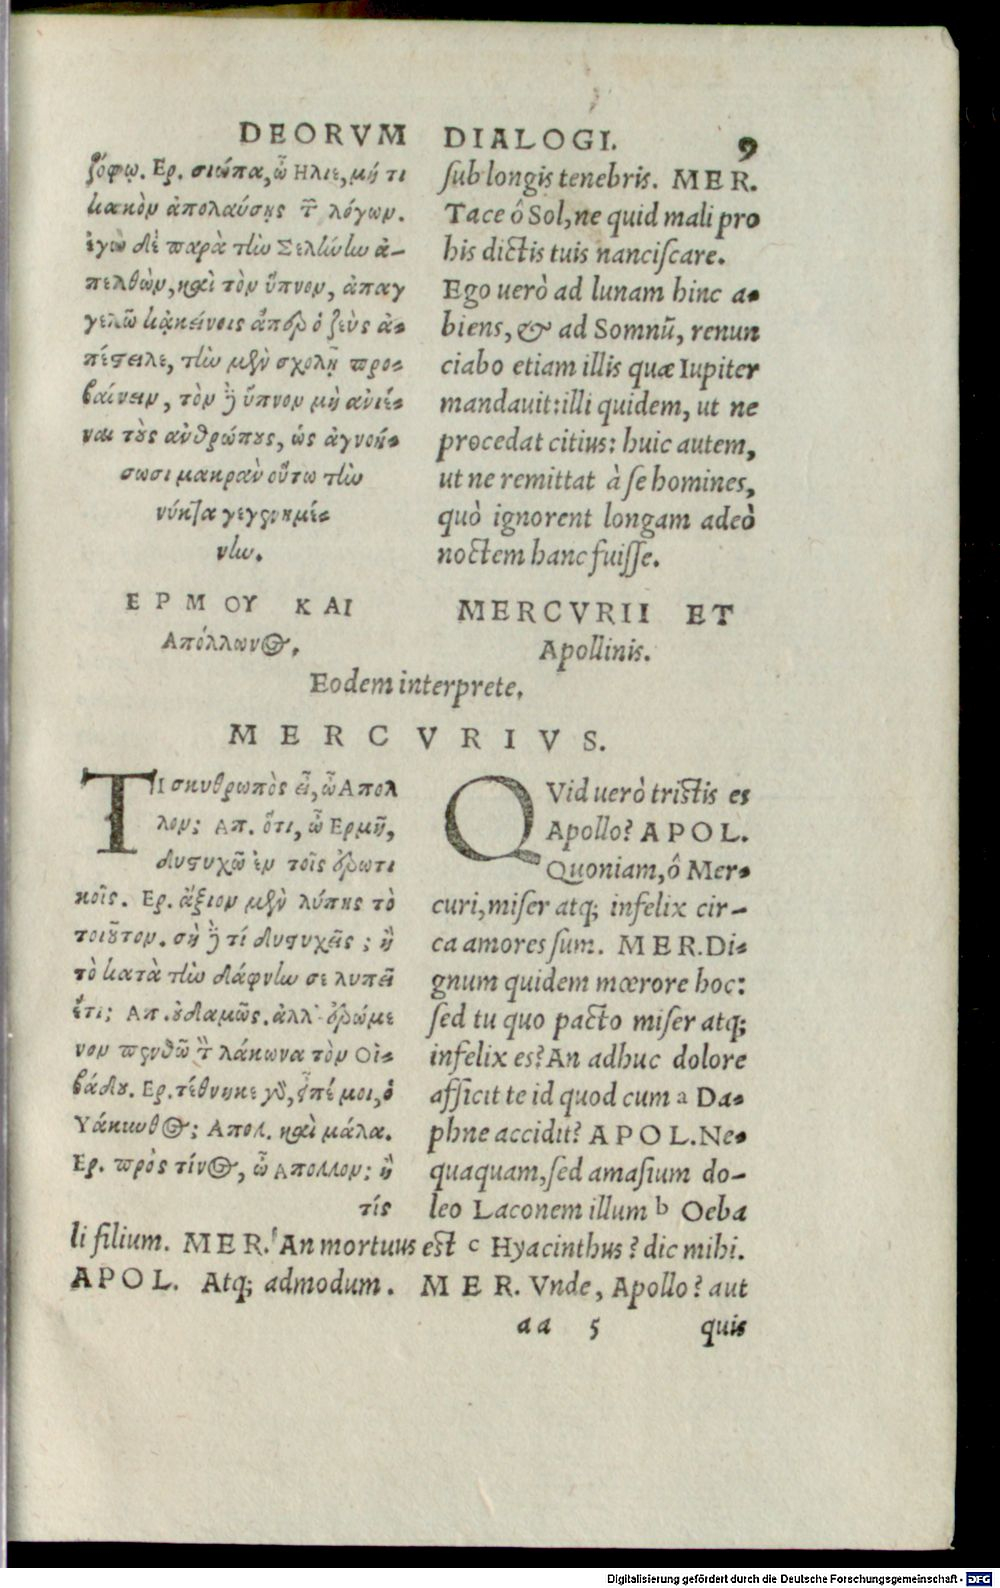 DEORVM DIALOGI. 9
ζόφῳ. Ερ. σιώπα, ὦ Ηλιε, μή τι
κακὸν ἀπολαύσῃς τ̃ λόγων.
ἐγὼ δὲ παρὰ τὴν Σελήνην ἀ-
πελθὼν, καὶ τὸν ὕπνον, ἀπαγ
γελῶ κᾀκείνοις ἅπερ ὁ ζεὺς ἀ-
πέστειλε, τὴν μὲν σχολῇ προ-
βαίνειν, τὸν δὲ ὕπνον μὴ ἀνιέ-
ναι τοὺς ἀνθρώπους, ὡς ἀγνοή-
σωσι μακρὰν οὕτω τὴν
νύκτα γεγενημέ-
νην.
ΕΡΜΟΥ ΚΑΙ
Απόλλωνος.
sub longis tenebris. MER.
Tace ô Sol, ne quid mali pro
his dictis tuis nanciscare.
Ego uerò ad lunam hinc a-
biens, & ad Somnũ, renun
ciabo etiam illis quæ Iupiter
mandauit: illi quidem, ut ne
procedat citius: huic autem,
ut ne remittat à se homines,
quò ignorent longam adeò
noctem hanc fuisse.
MERCVRII ET
Apollinis.
Eodem interprete.
MERCVRIVS.
ΤΙ σκυθρωπὸς εἶ, ὦ Απολ
λον; Απ. ὅτι, ὦ Ερμῆ,
δυστυχῶ ἐν τοῖς ἐρωτι
κοῖς. Ερ. ἄξιον μὲν λύπης τὸ
τοιοῦτον. σὴ δὲ τί δυστυχεῖς; ἢ
τὸ κατὰ τὴν δάφνην σε λυπεῖ
ἔτι; Απ. οὐδαμῶς. ἀλλ' ἐρώμε
νον πενθῶ τ̃ λάκωνα τὸν Οἰ-
βάλου. Ερ. τέθνηκε γὰρ, εἰπέ μοι, ὁ
Υάκινθος; Απολ. καὶ μάλα.
Ερ. πρὸς τίνος, ὦ Απολλον; ἢ
τίς
QVid uerò tristis es
Apollo? APOL.
Quoniam, ô Mer-
curi, miser atq; infelix cir-
ca amores sum. MER. Di-
gnum quidem mœrore hoc:
sed tu quo pacto miser atq;
infelix es? An adhuc dolore
afficit te id quod cum a Da-
phne accidit? APOL. Ne-
quaquam, sed amasium do-
leo Laconem illum b Oeba
li filium. MER. An mortuus est c Hyacinthus? dic mihi.
APOL. Atq; admodum. MER. Vnde, Apollo? aut
aa 5 quis
Digitalisierung gefördert durch die Deutsche Forschungsgemeinschaft - DFG